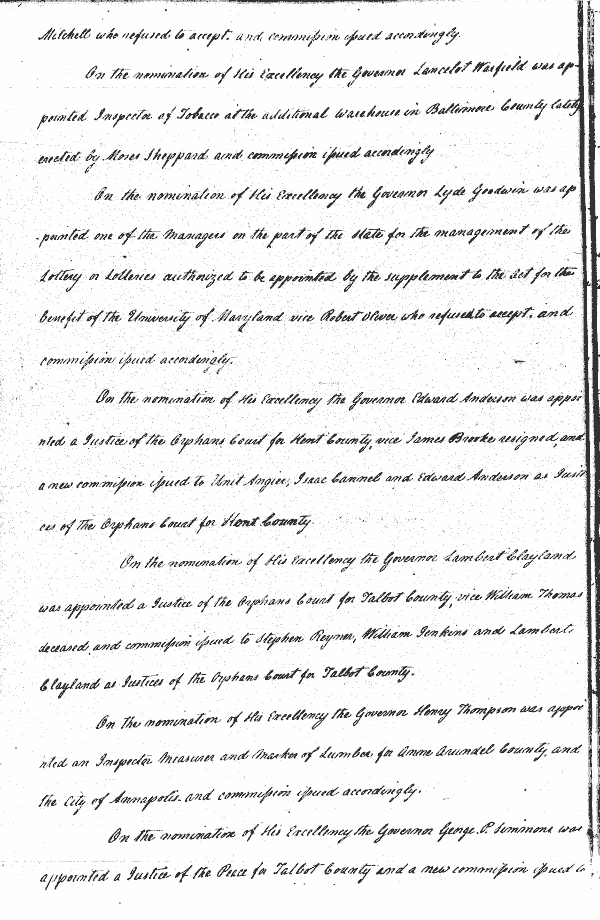 Mitchell who refused to accept. and commission issued accordingly.
On the nomination of His Excellency the Governor Lancelot Warfield was ap-
pointed Inspector of Tobacco at the additional Warehouse in Baltimore County lately
erected by Moses Sheppard and commission issued accordingly
On the nomination of His Excellency the Governor Lyde Goodwin was ap
-pointed one of the Managers on the part of the State for the management of the
Lottery or Lotteries authorized to be appointed by the supplement to the Act for the
benefit of the University of Maryland vice Robert Oliver who refused to accept. and
commission issued accordingly.
On the nomination of His Excellency the Governor Edward Anderson was appoi
nted a Justice of the Orphans Court for Kent County, vice James Brooke resigned, and
a new commission issued to Unit Angier, Isaac Cannel and Edward Anderson as Justi
ces of the Orphans Court for Kent County.
On the nomination of His Excellency the Governor Lambert Clayland
was appointed a Justice of the Orphans Court for Talbot County, vice William Thomas
deceased, and commission issued to Stephen Reyner, William Jenkins and Lambert
Clayland as Justices of the Orphans Court for Talbot County.
On the nomination of His Excellency the Governor Henry Thompson was appoi
nted an Inspector Measurer and Marker of Lumber for Anne Arundel County, and
the City of Annapolis. and commission issued accordingly.
On the nomination of His Excellency the Governor George P. Simmons was
appointed a Justice of the Peace for Talbot County and a new commission issued to